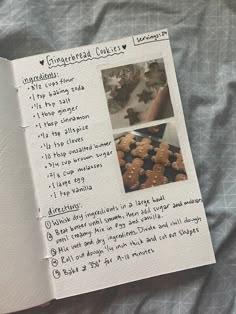 servings:
♥ Gingerbread Cookies ♥
ingredients:
• 3 ½ cups flour
• 1 tsp baking soda
• ½ tsp salt
• 1 tsp ginger
• 1 tsp cinnamon
• ½ tsp allspice
• ½ tsp cloves
• 10 tbsp unsalted butter
• ¾ cup brown sugar
• ⅔ cup molasses
• 1 large egg
• 1 tsp vanilla
directions:
① Whisk dry ingredients in a large bowl
② Beat butter until smooth, then add sugar and molasses
until creamy. Mix in egg and vanilla.
③ Mix wet and dry ingredients. Divide and chill dough
④ Roll out dough ¼ inch thick and cut out shapes
⑤ Bake at 350° for 9-10 minutes